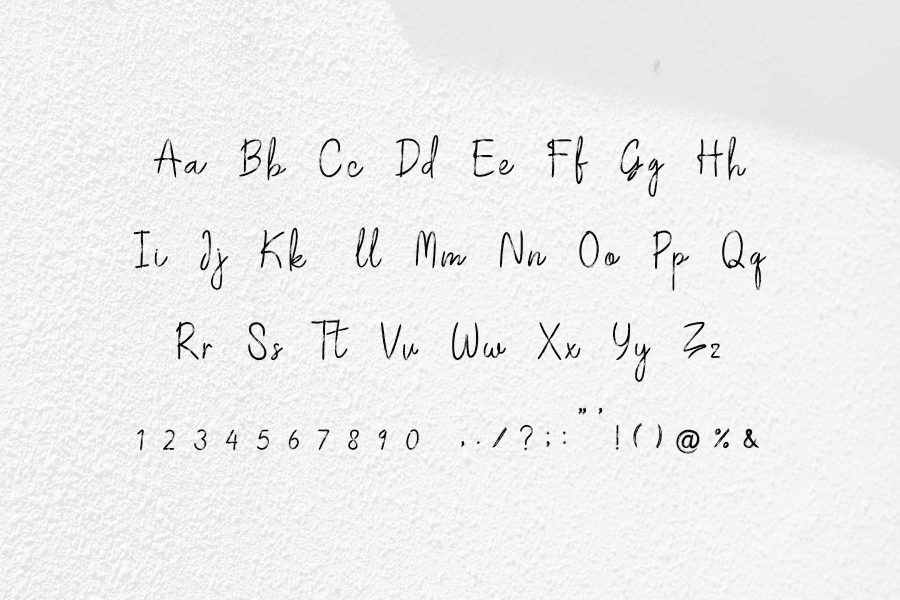 Aa Bb Cc Dd Ee Ff Gg Hh
Ii Jj Kk ll Mm Nn Oo Pp Qq
Rr Ss Tt Vv Ww Xx Yy Zz
1 2 3 4 5 6 7 8 9 0 , . / ? ; : " ' ! ( ) @ % &